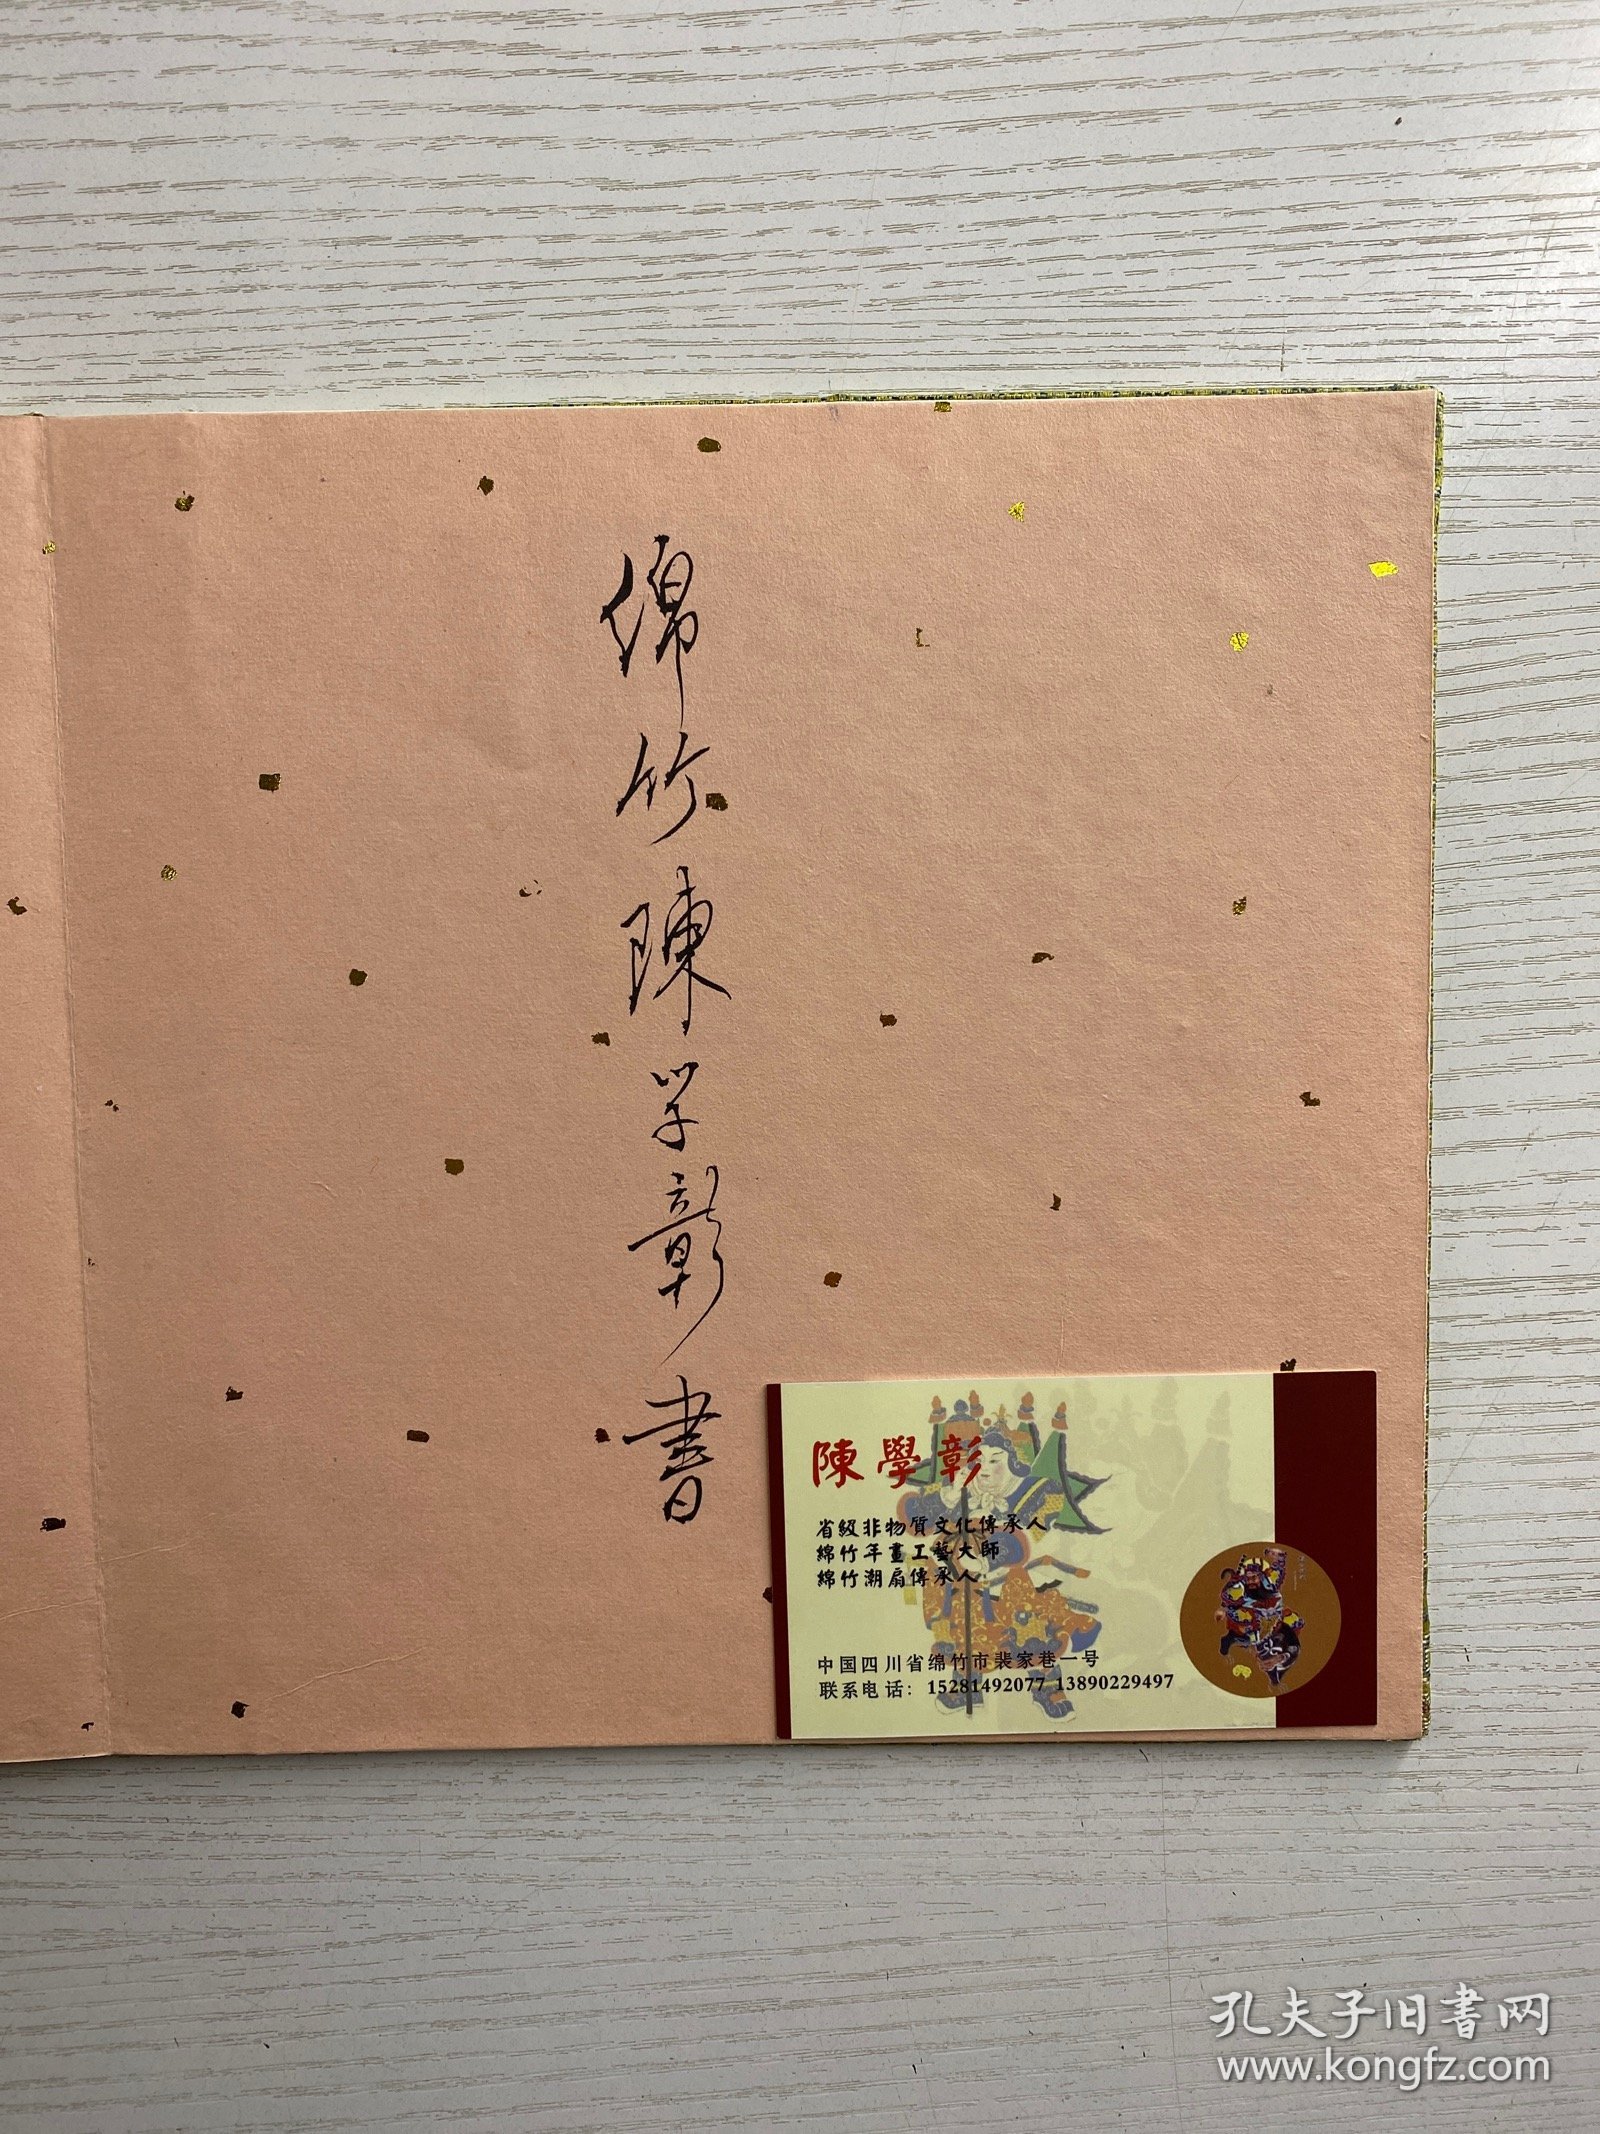 绵竹陳学彰書
陳學彰
省級非物質文化傳承人
綿竹年畫工藝大師
綿竹潮扇傳承人
中国四川省绵竹市裴家巷一号
联系电话：15281492077 13890229497
孔夫子旧书网
www.kongfz.com